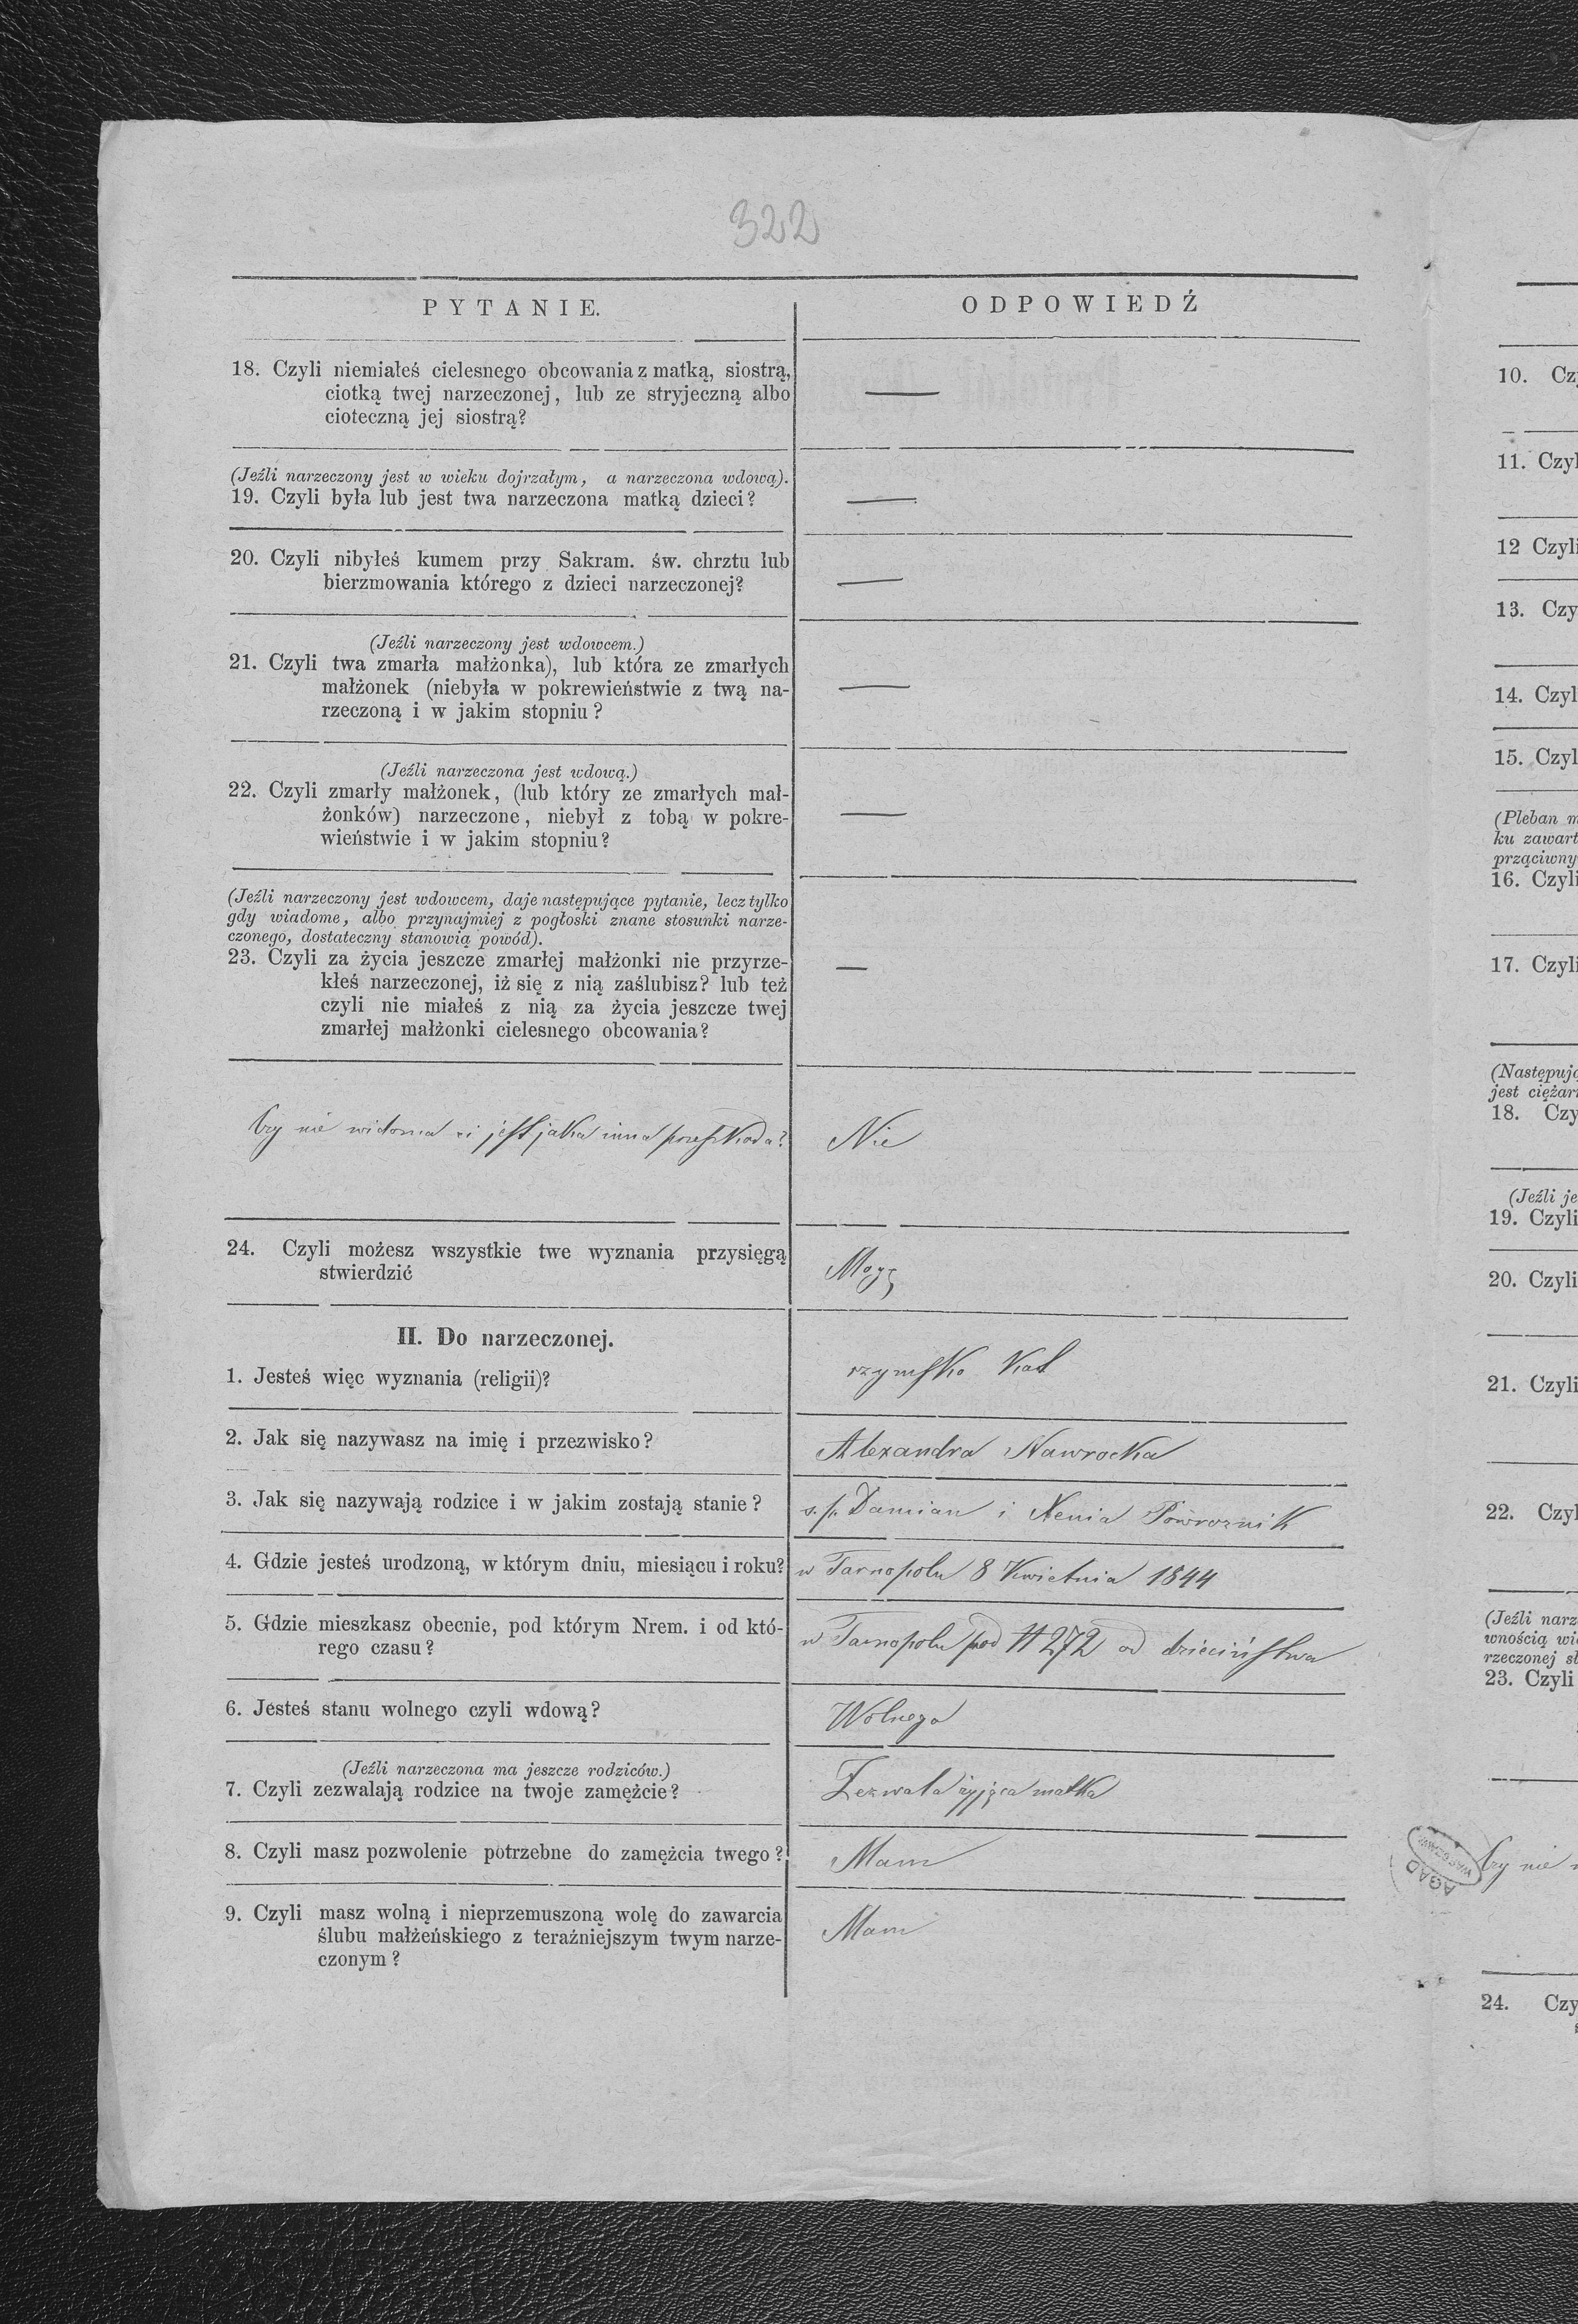 322
PYTANIE.
ODPOWIEDŹ
18. Czyli niemiałeś cielesnego obcowania z matką, siostrą,
ciotką twej narzeczonej, lub ze stryjeczną albo
cioteczną jej siostrą?
—
(Jeźli narzeczony jest w wieku dojrzałym, a narzeczona wdową).
19. Czyli była lub jest twa narzeczona matką dzieci?
—
20. Czyli nibyłeś kumem przy Sakram. św. chrztu lub
bierzmowania którego z dzieci narzeczonej?
—
(Jeźli narzeczony jest wdowcem.)
21. Czyli twa zmarła małżonka), lub która ze zmarłych
małżonek (niebyła w pokrewieństwie z twą na-
rzeczoną i w jakim stopniu?
—
(Jeźli narzeczona jest wdową.)
22. Czyli zmarły małżonek, (lub który ze zmarłych mał-
żonków) narzeczone, niebył z tobą w pokre-
wieństwie i w jakim stopniu?
—
(Jeźli narzeczony jest wdowcem, daje następujące pytanie, lecz tylko
gdy wiadome, albo przynajmiej z pogłoski znane stosunki narze-
czonego, dostateczny stanowią powód).
23. Czyli za życia jeszcze zmarłej małżonki nie przyrze-
kłeś narzeczonej, iż się z nią zaślubisz? lub też
czyli nie miałeś z nią za życia jeszcze twej
zmarłej małżonki cielesnego obcowania?
—
Czy nie widoma ci jest jaka inna przeszkoda?
Nie
24. Czyli możesz wszystkie twe wyznania przysięgą
stwierdzić
Mogę
II. Do narzeczonej.
1. Jesteś więc wyznania (religii)?
rzymsko Kat
2. Jak się nazywasz na imię i przezwisko?
Alexandra Nawrocka
3. Jak się nazywają rodzice i w jakim zostają stanie?
s.p. Damian i Xenia Powroznik
4. Gdzie jesteś urodzoną, w którym dniu, miesiącu i roku?
w Tarnopolu 8 Kwietnia 1844
5. Gdzie mieszkasz obecnie, pod którym Nrem. i od któ-
rego czasu?
w Tarnopolu pod # 272 od dzieciństwa
6. Jesteś stanu wolnego czyli wdową?
Wolnego
(Jeźli narzeczona ma jeszcze rodziców.)
7. Czyli zezwalają rodzice na twoje zamężcie?
Zezwala żyjąca matka
8. Czyli masz pozwolenie potrzebne do zamężcia twego?
Mam
9. Czyli masz wolną i nieprzemuszoną wolę do zawarcia
ślubu małżeńskiego z teraźniejszym twym narze-
czonym?
Mam
10. Cz
11. Czyl
12 Czyli
13. Czy
14. Czyl
15. Czyl
(Pleban m
ku zawart
prząciwny
16. Czyli
17. Czyli
(Następują
jest ciężar
18. Czy
(Jeźli je
19. Czyli
20. Czyli
21. Czyli
22. Czyl
(Jeźli narz
wnością wi
rzeczonej sł
23. Czyli
AGAD
WARSZAWA
Czy nie
24. Czy